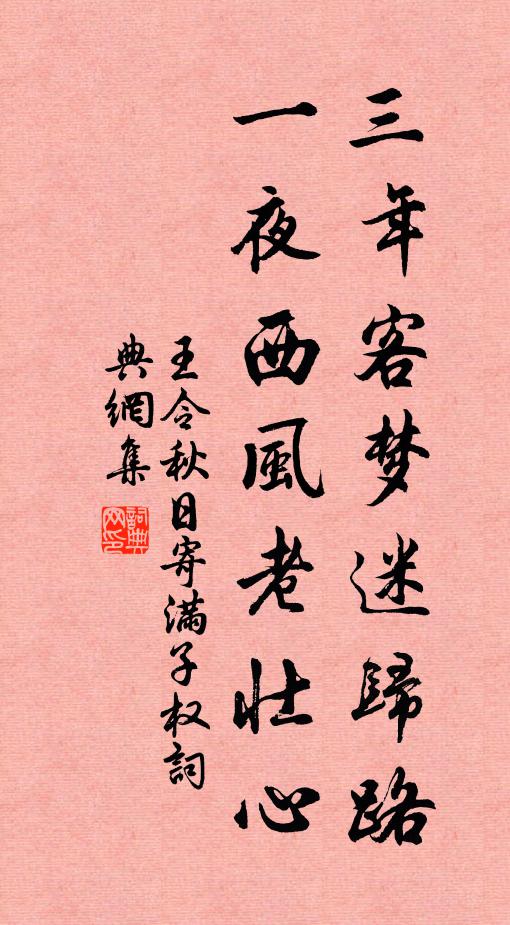 三年客梦迷歸路
一夜西風老壯心
王令秋日寄滿子权詞
典網集
詞典
网印